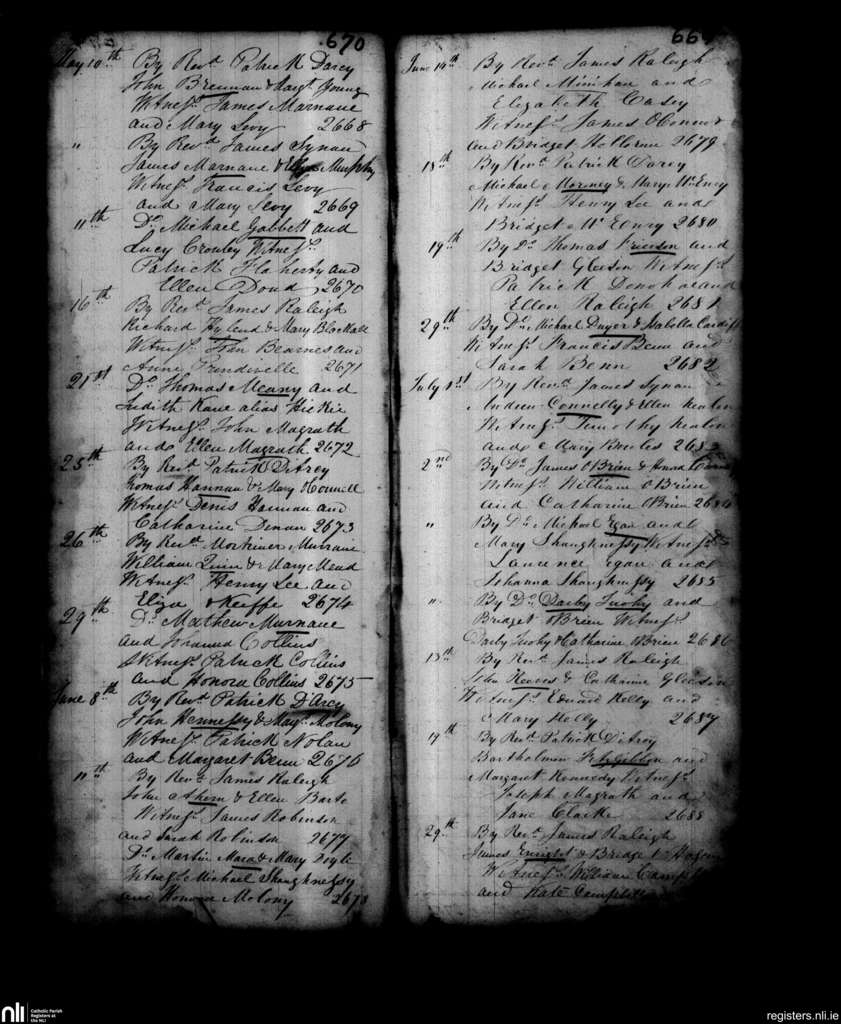 670
May 10th By Revd. Patrick Darcy
John Brennan & Margt. Young
Witness. James Marnane
and Mary Levy 2668
" By Revd. James Synan
James Marnane & Murphy
Witness. Francis Levy
and Mary Levy 2669
11th Do. Michael Gabbett and
Lucy Crowley Witness.
Patrick Flaherty and
Ellen Doud 2670
16th By Revd. James Raleigh
Richard Hyland & Mary Blackall
Witness. John Bearnes and
Anne 2671
21st Do. Thomas Meany and
Judith Kane alias Hickie
Witness. John Magrath
and Ellen Magrath 2672
25th By Revd. Patrick DArcy
Thomas Hannan & Mary OConnell
Witness. Denis Hannan and
Catharine Dinan 2673
26th By Revd. Mortimer Murnane
William Quin & Mary Mead
Witness. Henry Lee and
Eliza Keiffe 2674
29th Do. Mathew Murnane
and Johanna Collins
Witness. Patrick Collins
and Honora Collins 2675
June 8th By Revd. Patrick D'Arcy
John Hennessy & Margt. Molony
Witness. Patrick Nolan
and Margaret Benn 2676
11th By Revd. James Raleigh
John Ahern & Ellen Barto
Witness. James Robinson
and Sarah Robinson 2677
Do. Martin Mara & Mary Doyle
Witness. Michael Shaughnessy
and Honora Molony 2678
June 14th By Revd. James Raleigh
Michael Minihan and
Elizabeth Casey
Witness. James OConnor
and Bridget Holloran 2679
18th By Revd. Patrick Darcy
Michael Moroney & Mary McEnry
Witness. Henry Lee and
Bridget McEnry 2680
19th By Do. Thomas Frierson and
Bridget Gleeson Witness.
Patrick Donohoe and
Ellen Raleigh 2681
29th By Do. Michael Dwyer & Isabella Cardiff
Witness. Francis Benn and
Sarah Benn 2682
July 1st By Revd. James Synan
Andrew Connelly & Ellen
Witness. Timothy
and Mary Bowles 2683
2nd By Do. James OBrien & Honora
Witness. William OBrien
and Catharine OBrien 2684
" By Do. Michael Egan and
Mary Shaughnessy Witness.
Laurence Egan and
Johanna Shaughnessy 2685
" By Do. Darby Tuohy and
Bridget OBrien Witness.
Darby Tuohy & Catharine OBrien 2686
13th By Revd. James Raleigh
John Reeves & Catharine Gleeson
Witness. Edward Kelly and
Mary Kelly 2687
19th By Revd. Patrick DArcy
Bartholmew Fitzgibbon and
Margaret Kennedy Witness.
Joseph Magrath and
Jane Clarke 2688
29th By Revd. James Raleigh
James Enright & Bridget Hogan
Witness. William
and Kate
nli
Catholic Parish
Registers at
the NLI
registers.nli.ie